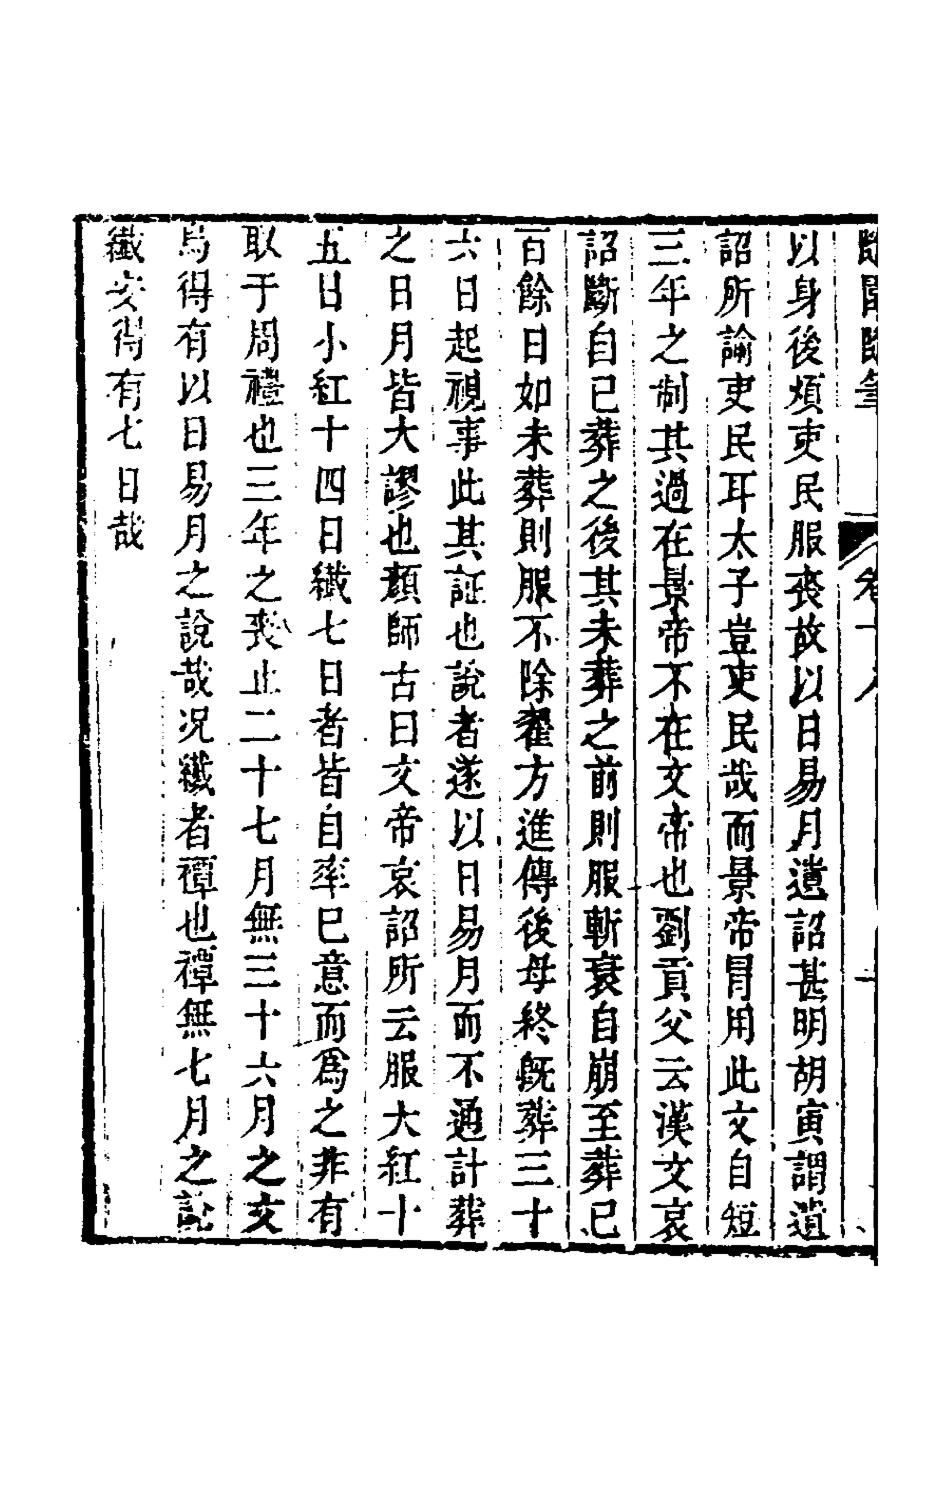 隨園隨筆 卷十八
以身後煩吏民服喪故以日易月遺詔甚明胡寅謂遺
詔所諭吏民耳太子豈吏民哉而景帝冐用此文自短
三年之制其過在景帝不在文帝也劉貢父云漢文哀
詔斷自已葬之後其未葬之前則服斬衰自崩至葬已
百餘日如未葬則服不除翟方進傳後母終旣葬三十
六日起視事此其証也說者遂以日易月而不通計葬
之日月皆大謬也顏師古曰文帝哀詔所云服大紅十
五日小紅十四日纎七日者皆自率已意而爲之非有
取于周禮也三年之喪止二十七月無三十六月之文
焉得有以日易月之說哉况纎者禫也禫無七月之說
纎安得有七日哉